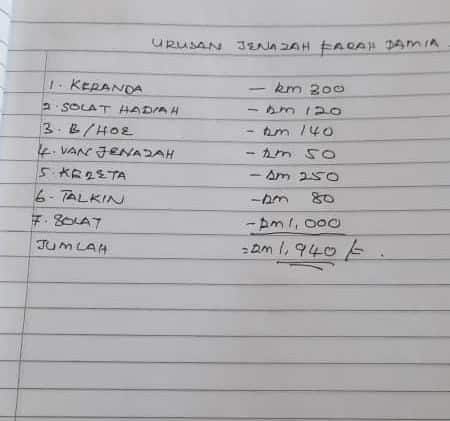 URUSAN JENAZAH FARAH DAMIA.
1. KERANDA - RM 300
2. SOLAT HADIAH - RM 120
3. B/HOE - RM 140
4. VAN JENAZAH - RM 50
5. KERETA - RM 250
6. TALKIN - RM 80
7. SOLAT - RM 1,000
JUMLAH = RM 1,940/=.